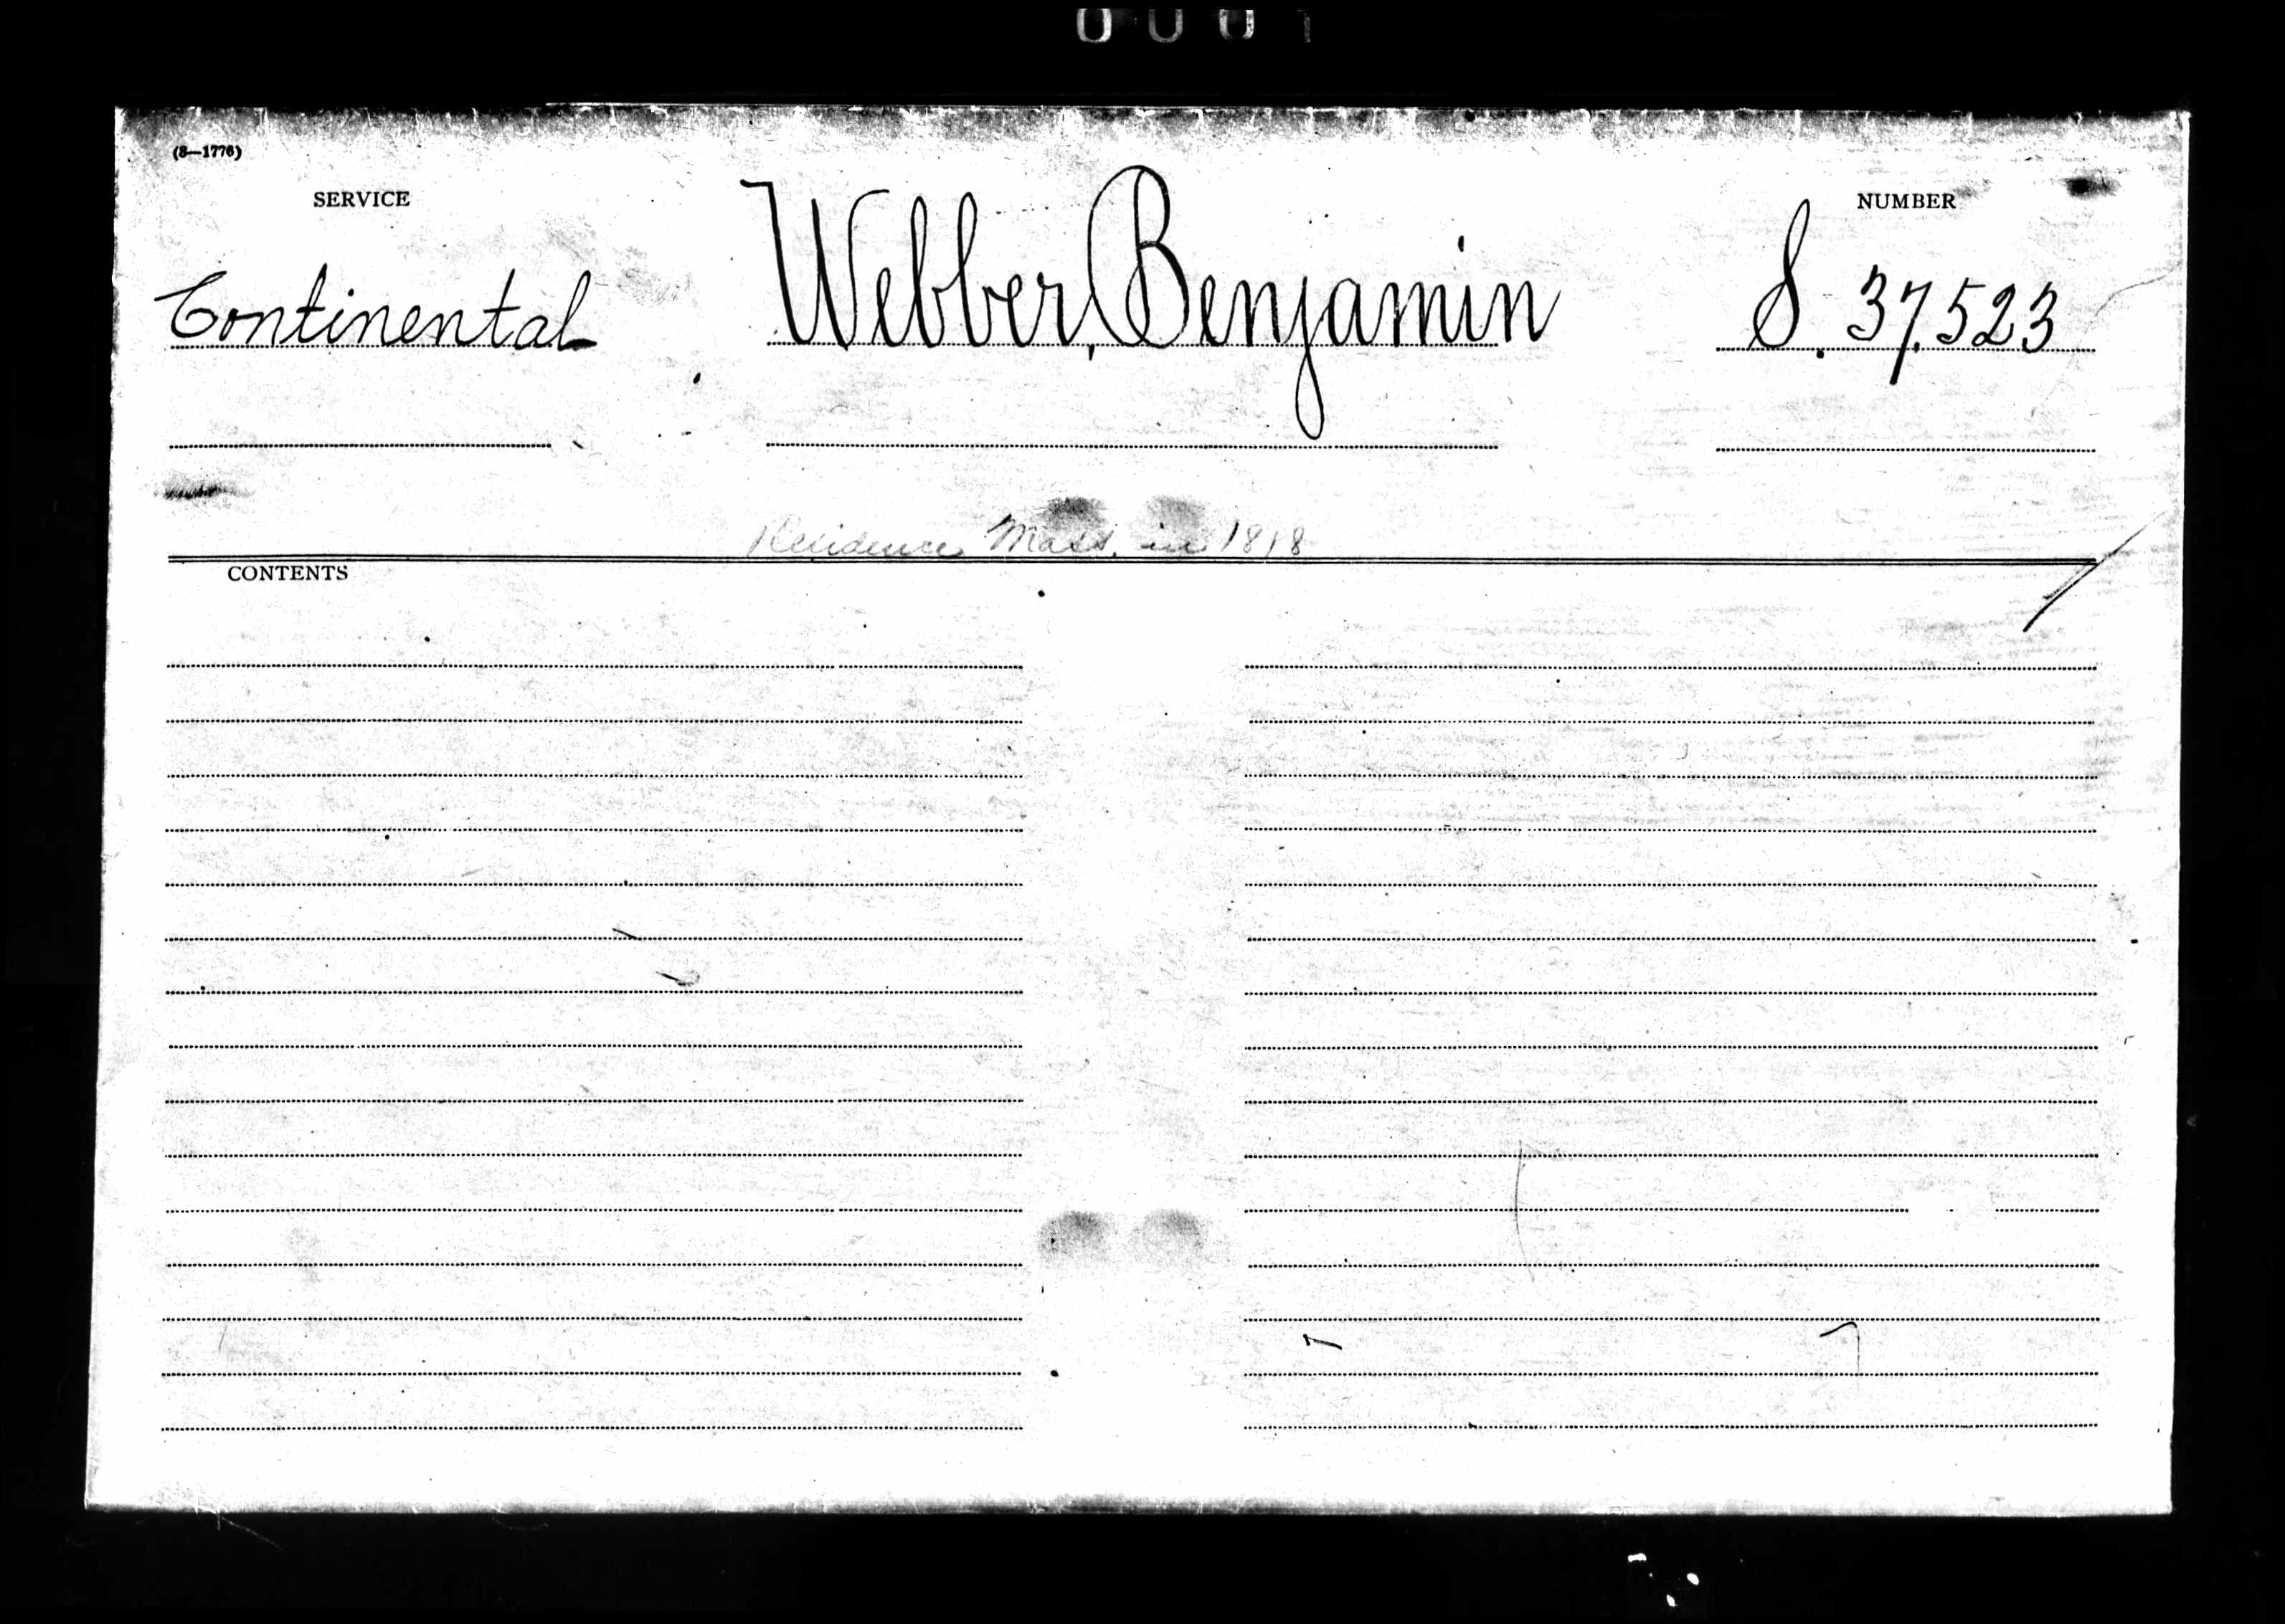 0001
(3—1776)
SERVICE
NUMBER
Continental
Webber, Benjamin
S. 37,523
Residence Mass. in 1818
CONTENTS